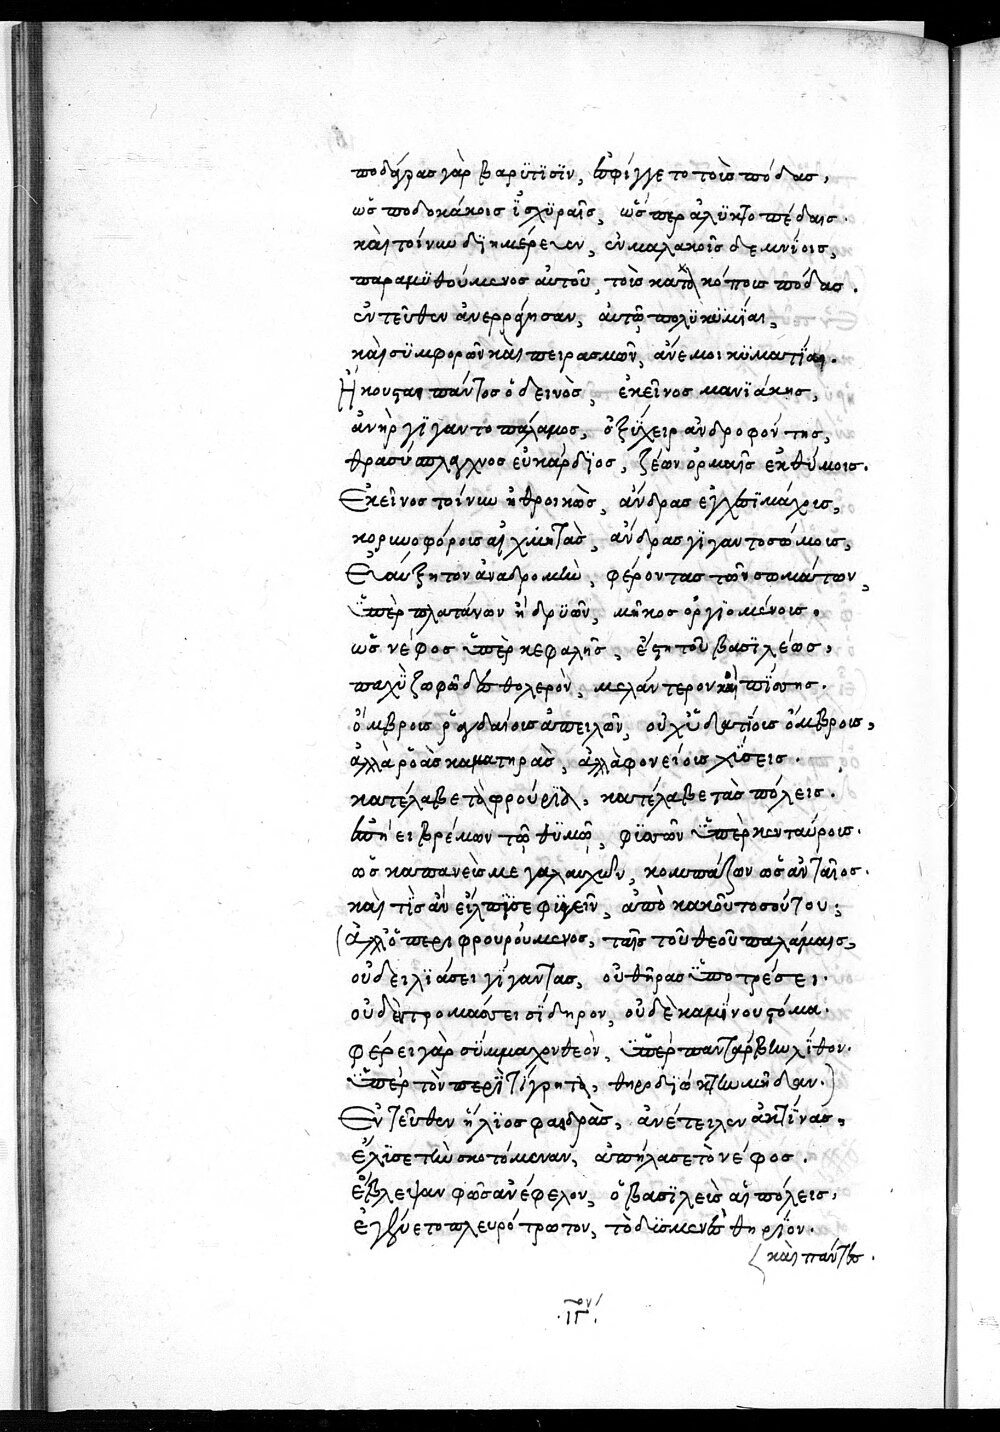 ποδάγρας γὰρ βαρύτισϊν, ἐσφίγγετο τοὺς πόδας,
ὡς ποδοκάκοις ἰσχυραῖς, ὥσπερ ἀλυκτοπέδαις.
καὶ τοίνυν διημέρευεν, ἐν μαλακοῖς δεμνίοις,
παραμυθούμενος αὐτοῦ, τοὺς κατακόπους πόδας.
ἐντεῦθεν ἀνερράγησαν, αὐτῷ πολυκυμίαι,
καὶ συμφορῶν καὶ πειρασμῶν, ἄνεμοι κυματίαι.
Ἤκουσται πάντως ὁ δεινὸς, ἐκεῖνος μανιάκης,
ἀνὴρ γιγαντοπάλαμος, ὀξύχειρ ἀνδροφόντης,
θρασύσπλαγχνος εὐκάρδιος, ζέων ὁρμαῖς ἐκθύμοις.
Ἐκεῖνος τοίνυν ἠθροικὼς, ἄνδρας ἐγχεσιμάχους,
κορυνοφόρους αἰχμητὰς, ἄνδρας γιγαντοσώμους,
Εὐαύξητον ἀναδρομὴν, φέροντας τῶν σωμάτων,
ὑπὲρ πλατάνων ἢ δρυῶν, μῆκος ὀργυιομένους.
ὡς νέφος ὑπὲρ κεφαλῆς, ἔστη τοῦ βασιλέως,
παχὺ ζοφῶδες θολερὸν, μελάντερον καὶ πίσσης.
ὄμβρους ῥαγδαίους ἀπειλῶν, οὐχ ὑδατίους ὄμβρους,
ἀλλὰ ῥοὰς καματηρὰς, ἀλλὰ φονείους χύσεις.
κατέλαβε τὸ φρούριον, κατέλαβε τὰς πόλεις.
ἐπήει βρέμων τῷ θυμῷ, φυσῶν ὑπὲρ κενταύρους.
ὡς καπανεὺς μεγαλαυχῶν, κομπάζων ὡς ἀνταῖος.
καὶ τίς ἂν εἤλπισε φυγεῖν, ἀπὸ κακοῦ τοσούτου;
(ἀλλ' ὅπερι φρουρούμενος, ταῖς τοῦ θεοῦ παλάμαις,
οὐ δειλιάσει γίγαντας, οὐ θῆρας ὑποτρέσει.
οὐδὲ τρομάσσει σίδηρον, οὐδὲ καμίνου στόμα.
φέρει γὰρ σύμμαχον θεὸν, ὑπὲρ παντάρβην λίθον.
ὑπὲρ τὸν περὶ τίγρητὸς, θηροδιώκτην μῆδον.)
Ἐντεῦθεν ἥλιος φαιδρὰς, ἀνέτειλεν ἀκτῖνας,
ἔλυσε τὴν σκοτόμεναν, ἀπήλασε τὸ νέφος.
ἔβλεψαν φῶς ἀνέφελον, ὁ βασιλεὺς αἱ πόλεις,
ἐγένετο πλευρότρωτον, τὸ δυσμενὲς θηρίον.
καὶ πάντες.
.ιγον.